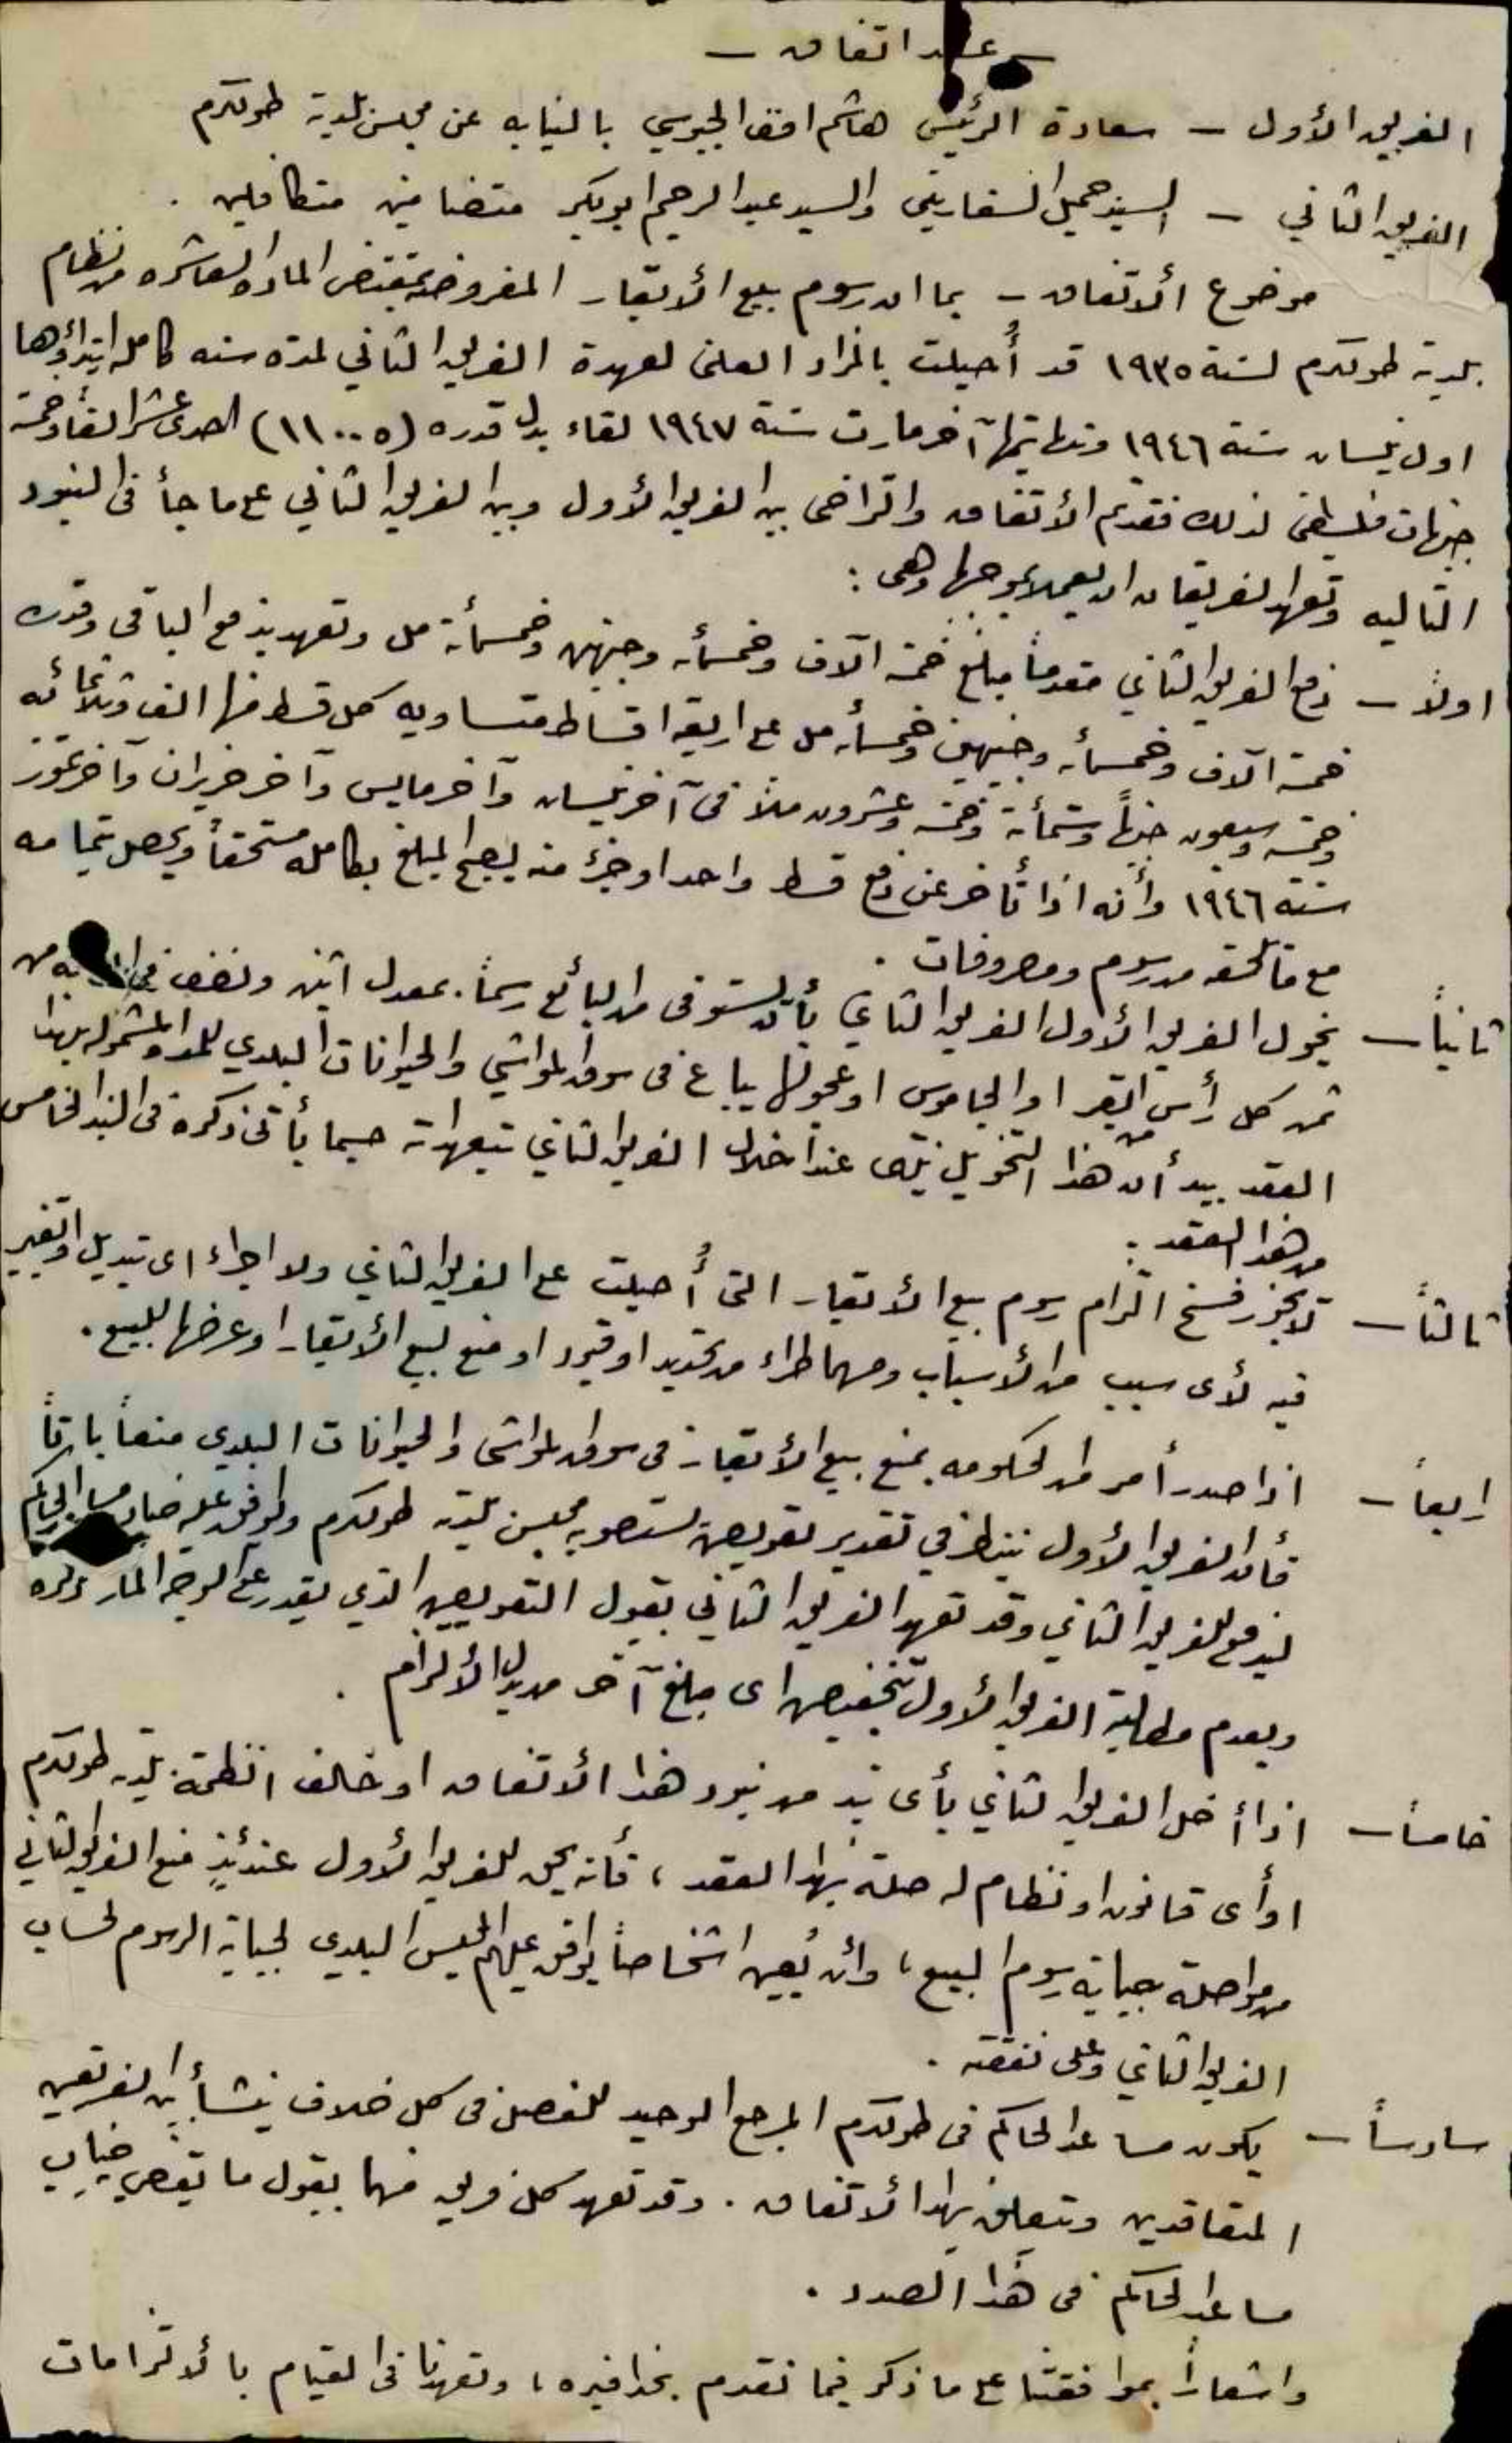 — عقد اتفاق —
الفريق الأول — سعادة الرئيس هاشم افندي الجيوسي بالنيابه عن مجلس بلدية طولكرم
الفريق الثاني — السيد جميل السفاريني والسيد عبد الرحيم ابو بكر متضامنين متكافلين .
موضوع الأتفاق — بما ان رسوم بيع الأبقار المفروضه بمقتضى الماده العاشره من نظام
بلدية طولكرم لسنة ١٩٣٥ قد أُحيلت بالمزاد العلني لعهدة الفريق الثاني لمدة سنه كامله ابتداؤها
اول نيسان سنة ١٩٤٦ ونهايتها آخر مارت سنة ١٩٤٧ لقاء بدل قدره (١١٠٠٥) احدى عشر الفاً وخمسة
جنيهات فلسطيني لذلك فقد تم الأتفاق والتراضي بين الفريق الأول وبين الفريق الثاني على ما جأ في البنود
التاليه وتعهد الفريقان ان يعملا بموجبها وهي :
اولاً — دفع الفريق الثاني مقدماً مبلغ خمسة آلاف وخمسمأية وجنيهين وخمسمأية مل وتعهد بدفع الباقي وقدره
خمسة آلاف وخمسمأية وجنيهين وخمسمأية مل على اربعة اقساط متساويه كل قسط منها الف وثلاثمائه
وخمسة وسبعون جنيهاً وستمأية وخمسة وعشرون ملاً في آخر نيسان وآخر مايس وآخر حزيران وآخر تموز
سنة ١٩٤٦ وأنه اذا تأخر عن دفع قسط واحد او جزء منه يصبح المبلغ بكامله مستحقاً ويحصل بتمامه
مع ما يلحقه من رسوم ومصروفات .
ثانياً — يخول الفريق الأول الفريق الثاني بأن يستوفى من البائع رسماً بمعدل اثنين ونصف في من
ثمن كل رأس من البقر او الجاموس او عجولها يباع في سوق المواشي والحيوانات البلدي للمدة المشموله بهذا
العقد بيد أن هذا التخويل ينتهى عند اخلال الفريق الثاني بتعهداته حسبما يأتي ذكره في البند الخامس
من هذا العقد .
ثالثاً — لا يجوز فسخ التزام رسوم بيع الأبقار التي أُحيلت على الفريق الثاني ولا اجراء اى تبديل او تغيير
فيه لأى سبب من الأسباب ومهما طراء من تحديد او قيود او منع لبيع الأبقار او عرضها للبيع .
رابعاً — اذا صدر أمر من الحكومه بمنع بيع الأبقار في سوق المواشي والحيوانات البلدي منعاً باتاً
فأن الفريق الأول ينظر في تقدير تعويض يستصوبه مجلس بلدية طولكرم ويوافق عليه الحاكم
ليدفع للفريق الثاني وقد تعهد الفريق الثاني بقبول التعويض الذي يقدر على الوجه المار ذكره
وبعدم مطالبة الفريق الأول بتخفيض اى مبلغ آخر من بدل الألتزام .
خامساً — اذا أخل الفريق الثاني بأى بند من بنود هذا الأتفاق او خالف انظمة بلدية طولكرم
او أى قانون او نظام له صلة بهذا العقد ، فأنه يحق للفريق الأول عندئذٍ منع الفريق الثاني
من مواصلة جباية رسوم البيع ، وأن يُعين اشخاصاً يوافق عليهم المجلس البلدي لجباية الرسوم لحساب
الفريق الثاني وعلى نفقته .
سادساً — يكون مساعد الحاكم في طولكرم المرجع الوحيد للفصل في كل خلاف ينشأ بين الفريقين
المتعاقدين ويتعلق بهذا الأتفاق . وقد تعهد كل فريق منهما بقبول ما يقضي به جناب
مساعد الحاكم في هذا الصدد .
واشعاراً بموافقتنا على ما ذكر فيما تقدم بحذافيره ، وتعهدنا في القيام بالألتزامات